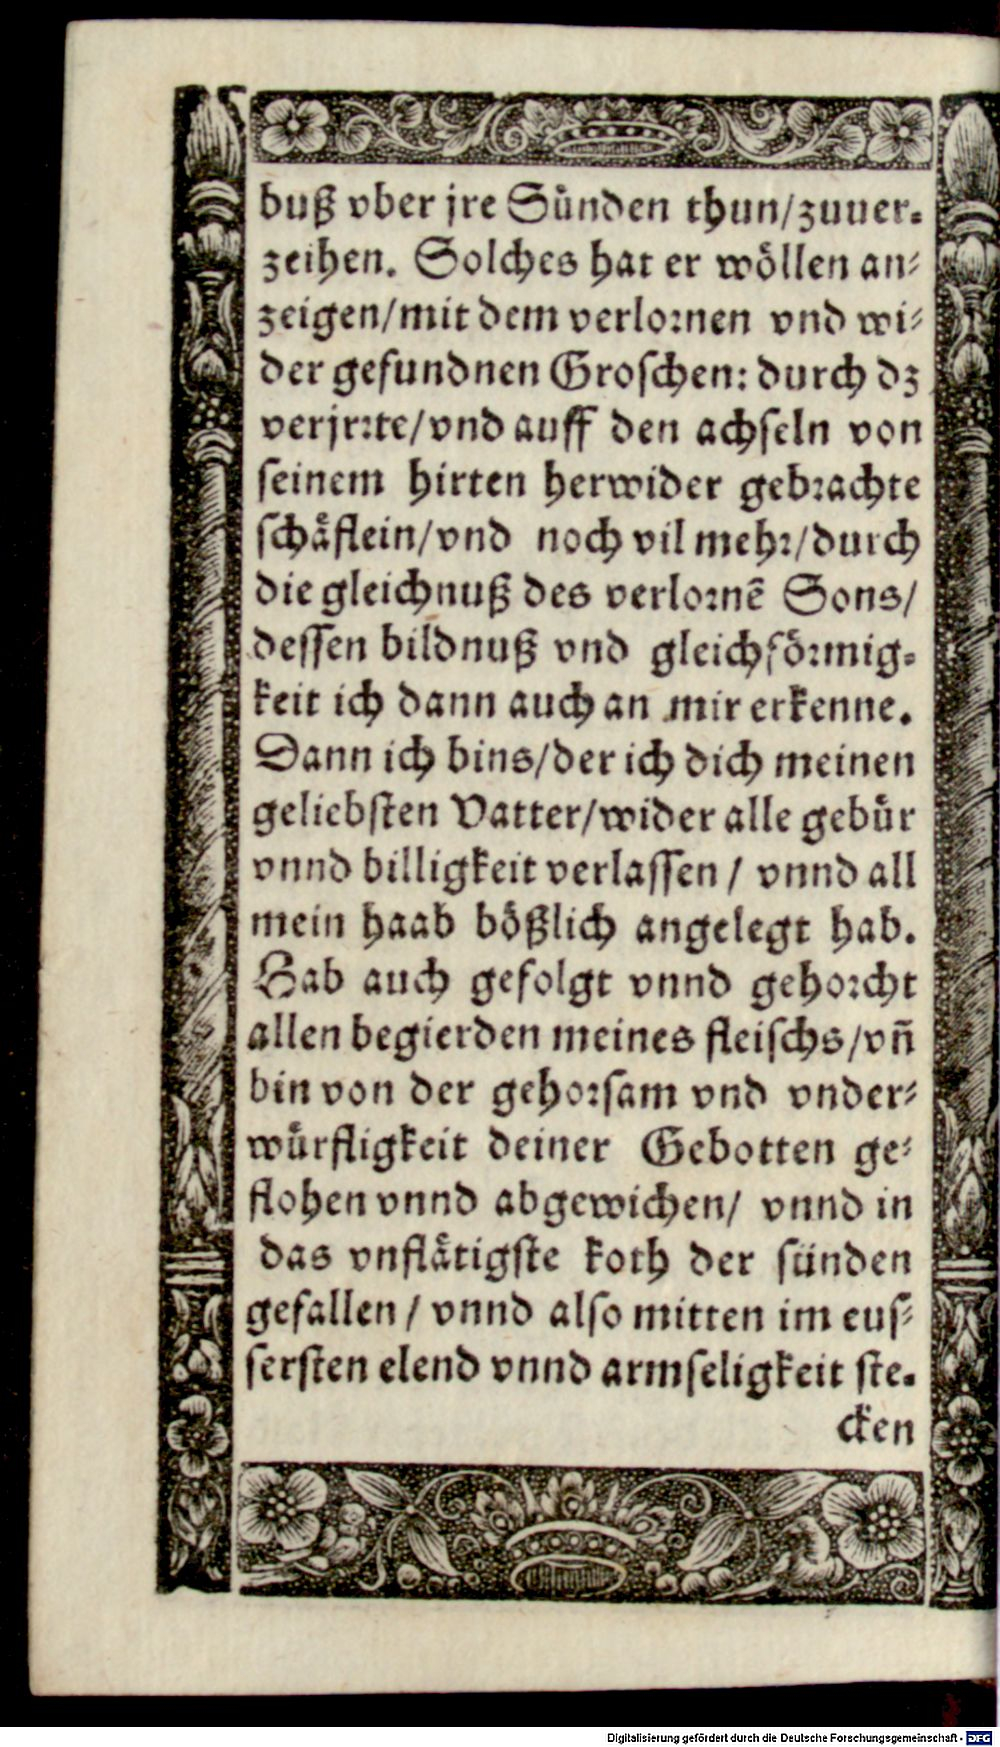 buß vber jre Sünden thun/zuuer-
zeihen. Solches hat er wöllen an-
zeigen/mit dem verlornen vnd wi-
der gefundnen Groschen: durch dz
verjrrte/vnd auff den achseln von
seinem hirten herwider gebrachte
schäflein/vnd noch vil mehr/durch
die gleichnuß des verlornẽ Sons/
dessen bildnuß vnd gleichförmig-
keit ich dann auch an mir erkenne.
Dann ich bins/der ich dich meinen
geliebsten Vatter/wider alle gebür
vnnd billigkeit verlassen / vnnd all
mein haab bößlich angelegt hab.
Hab auch gefolgt vnnd gehorcht
allen begierden meines fleischs/vñ
bin von der gehorsam vnd vnder-
würfligkeit deiner Gebotten ge-
flohen vnnd abgewichen/ vnnd in
das vnflätigste koth der sünden
gefallen / vnnd also mitten im eus-
sersten elend vnnd armseligkeit ste-
cken
Digitalisierung gefördert durch die Deutsche Forschungsgemeinschaft - DFG